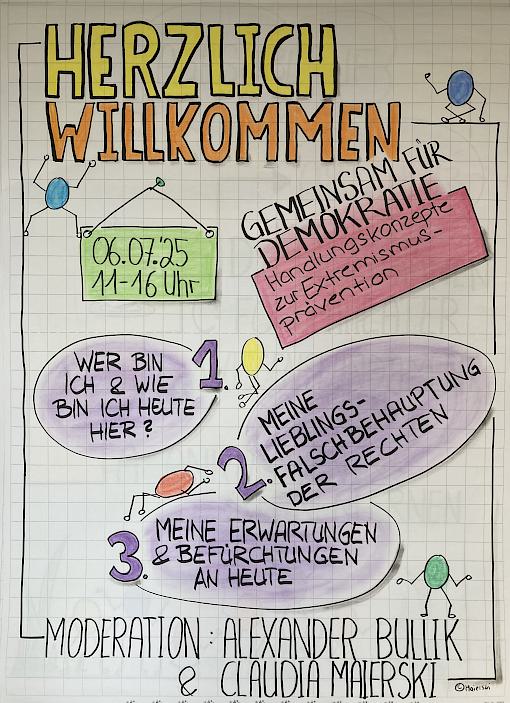 HERZLICH
WILLKOMMEN
GEMEINSAM FÜR
DEMOKRATIE
Handlungskonzepte
zur Extremismus-
prävention
06.07.'25
11-16 Uhr
1.
WER BIN
ICH & WIE
BIN ICH HEUTE
HIER?
2.
MEINE
LIEBLINGS-
FALSCHBEHAUPTUNG
DER RECHTEN
3.
MEINE ERWARTUNGEN
& BEFÜRCHTUNGEN
AN HEUTE
MODERATION: ALEXANDER BULLIK
& CLAUDIA MAIERSKI
©Maierski